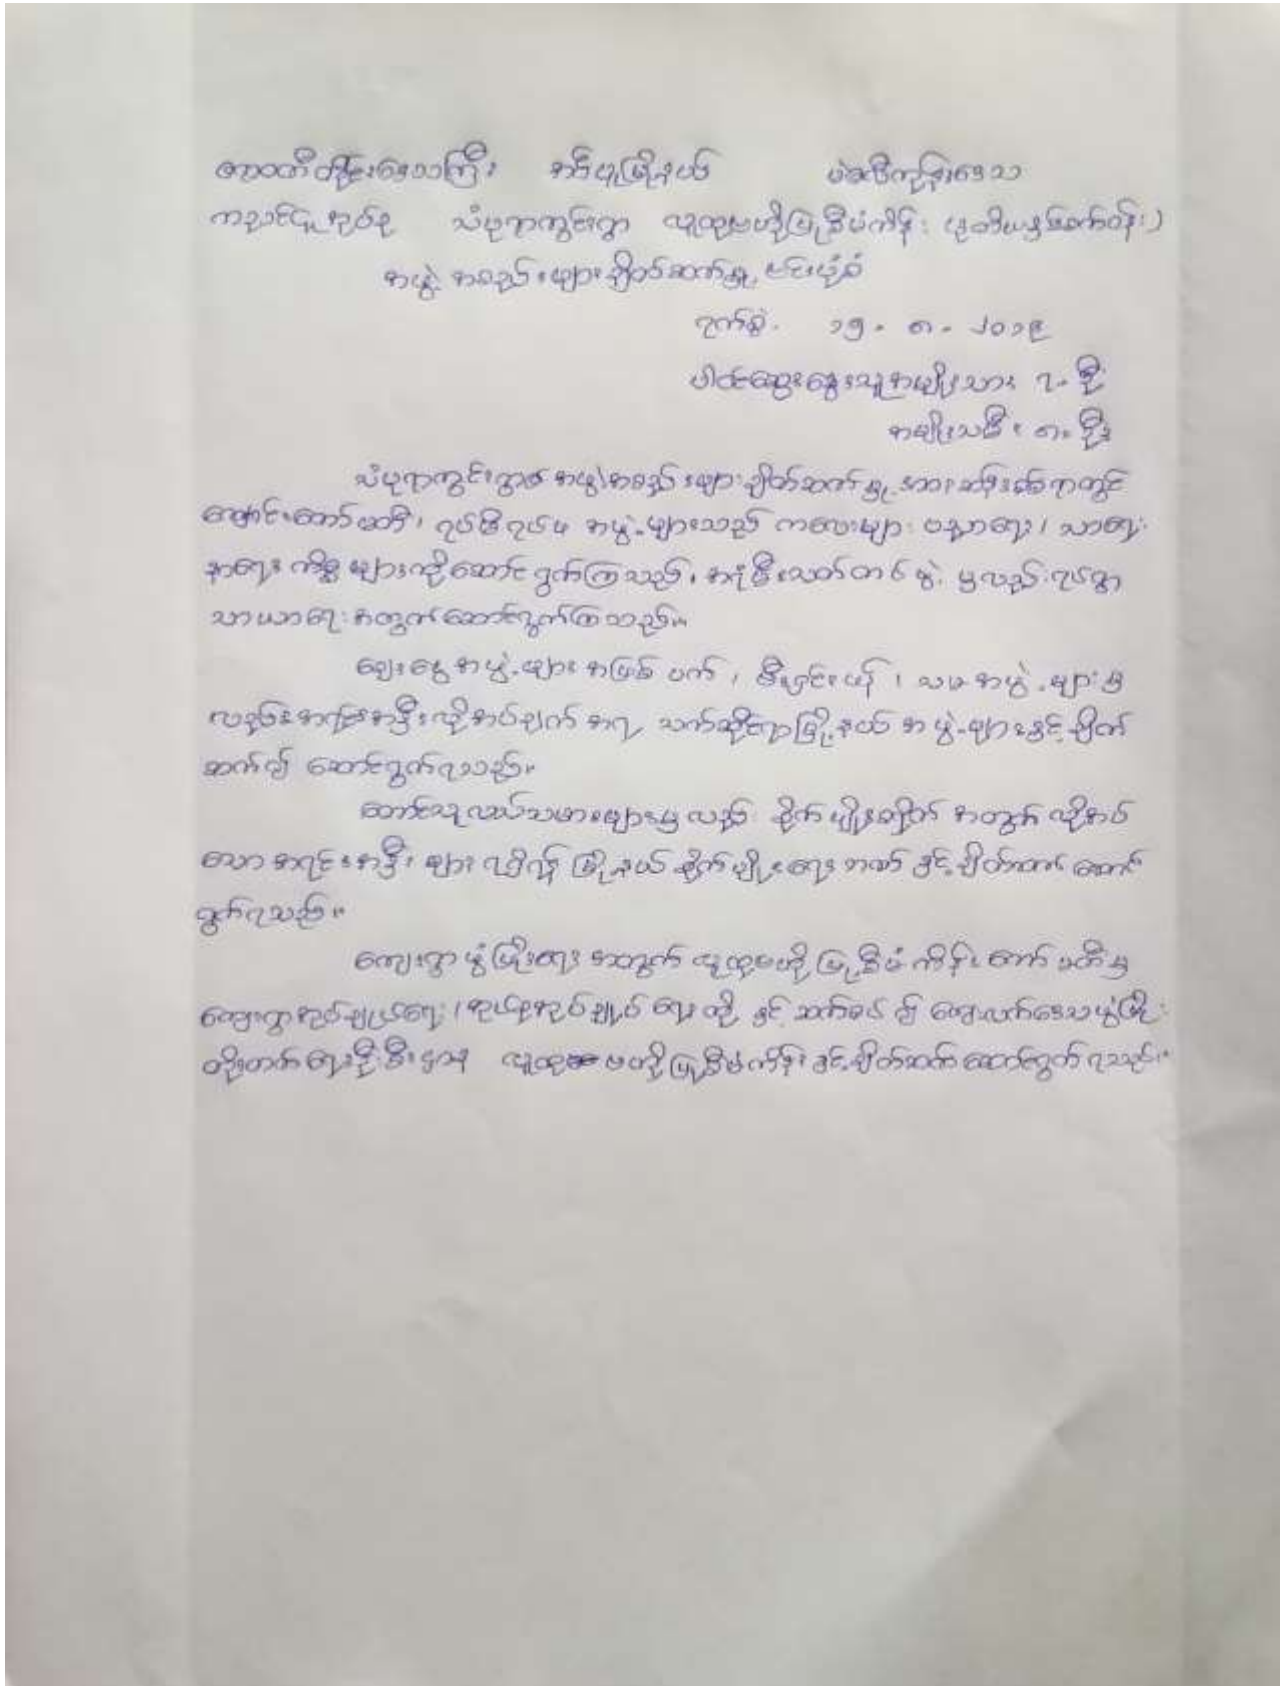 ဧရာဝတီတိုင်းဒေသကြီး အင်္ဂပူမြို့နယ် ကွန်းဒေသ
ကညင်ငူအုပ်စု သံပုရာကွင်းရွာ လူထုဗဟိုပြုစီမံကိန်း (ဒုတိယနှစ်စက်ဝန်း)
အဖွဲ့အစည်းများချိတ်ဆက်မှု ပုံစံ
ရက်စွဲ. ၁၅ - ၈ - ၂၀၁၉
ပါဝင်ဆွေးနွေးသူအမျိုးသား ၇- ဦး
အမျိုးသမီး ၈- ဦး
သံပုရာကွင်းရွာ၏ အဖွဲ့အစည်းများချိတ်ဆက်မှု အားဆန်းစစ်ရာတွင်
ကျောင်းကော်မတီ၊ ရပ်မိရပ်ဖ အဖွဲ့များသည် ကလေးများ ပညာရေး၊ သာရေး
နာရေး ကိစ္စများကိုဆောင်ရွက်ကြသည်၊ အရံမီးသတ်တပ်ဖွဲ့ မှလည်းရပ်ရွာ
သာယာရေးအတွက်ဆောင်ရွက်ကြသည်။
ချေးငွေအဖွဲ့များ အမြစ် ပတ်၊ မီးလှင်းယန်၊ သမအဖွဲ့များမှ
လည်းအရင်းအနှီးလိုအပ်ချက် အရ သက်ဆိုင်ရာမြို့နယ် အဖွဲ့များနှင့်ချိတ်
ဆက်၍ ဆောင်ရွက်ရသည်။
တောင်သူလယ်သမားများမှ လည်း စိုက်ပျိုးစရိတ် အတွက် လိုအပ်
သော အရင်းအနှီး များ ရရှိရန် မြို့နယ် စိုက်ပျိုးရေးဘဏ် နှင့်ချိတ်ဆက် ဆောင်
ရွက်ရသည်။
ကျေးရွာဖွံ့ဖြိုးရေး အတွက် လူထုဗဟိုပြုစီမံကိန်းကော်မတီမှ
ကျေးရွာအုပ်ချုပ်ရေး၊ အုပ်ချုပ်ရေး တို့ နှင့် ဆက်စပ်၍ ကျေးလက်ဒေသဖွံ့ဖြိုး
တိုးတက်ရေးဦးစီးဌာန လူထုဗဟိုပြုစီမံကိန်းနှင့်ချိတ်ဆက်ဆောင်ရွက်ရသည်။